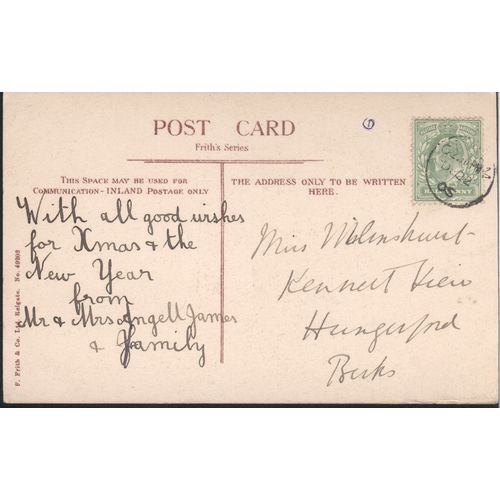 POST CARD
Frith's Series
THIS SPACE MAY BE USED FOR
COMMUNICATION - INLAND POSTAGE ONLY
THE ADDRESS ONLY TO BE WRITTEN
HERE.
With all good wishes
for Xmas & the
New Year
from
Mr & Mrs Angell James
& Family
Miss
Kennet View
Hungerford
Berks
F. Frith & Co. Ltd. Reigate. No.
HALFPENNY